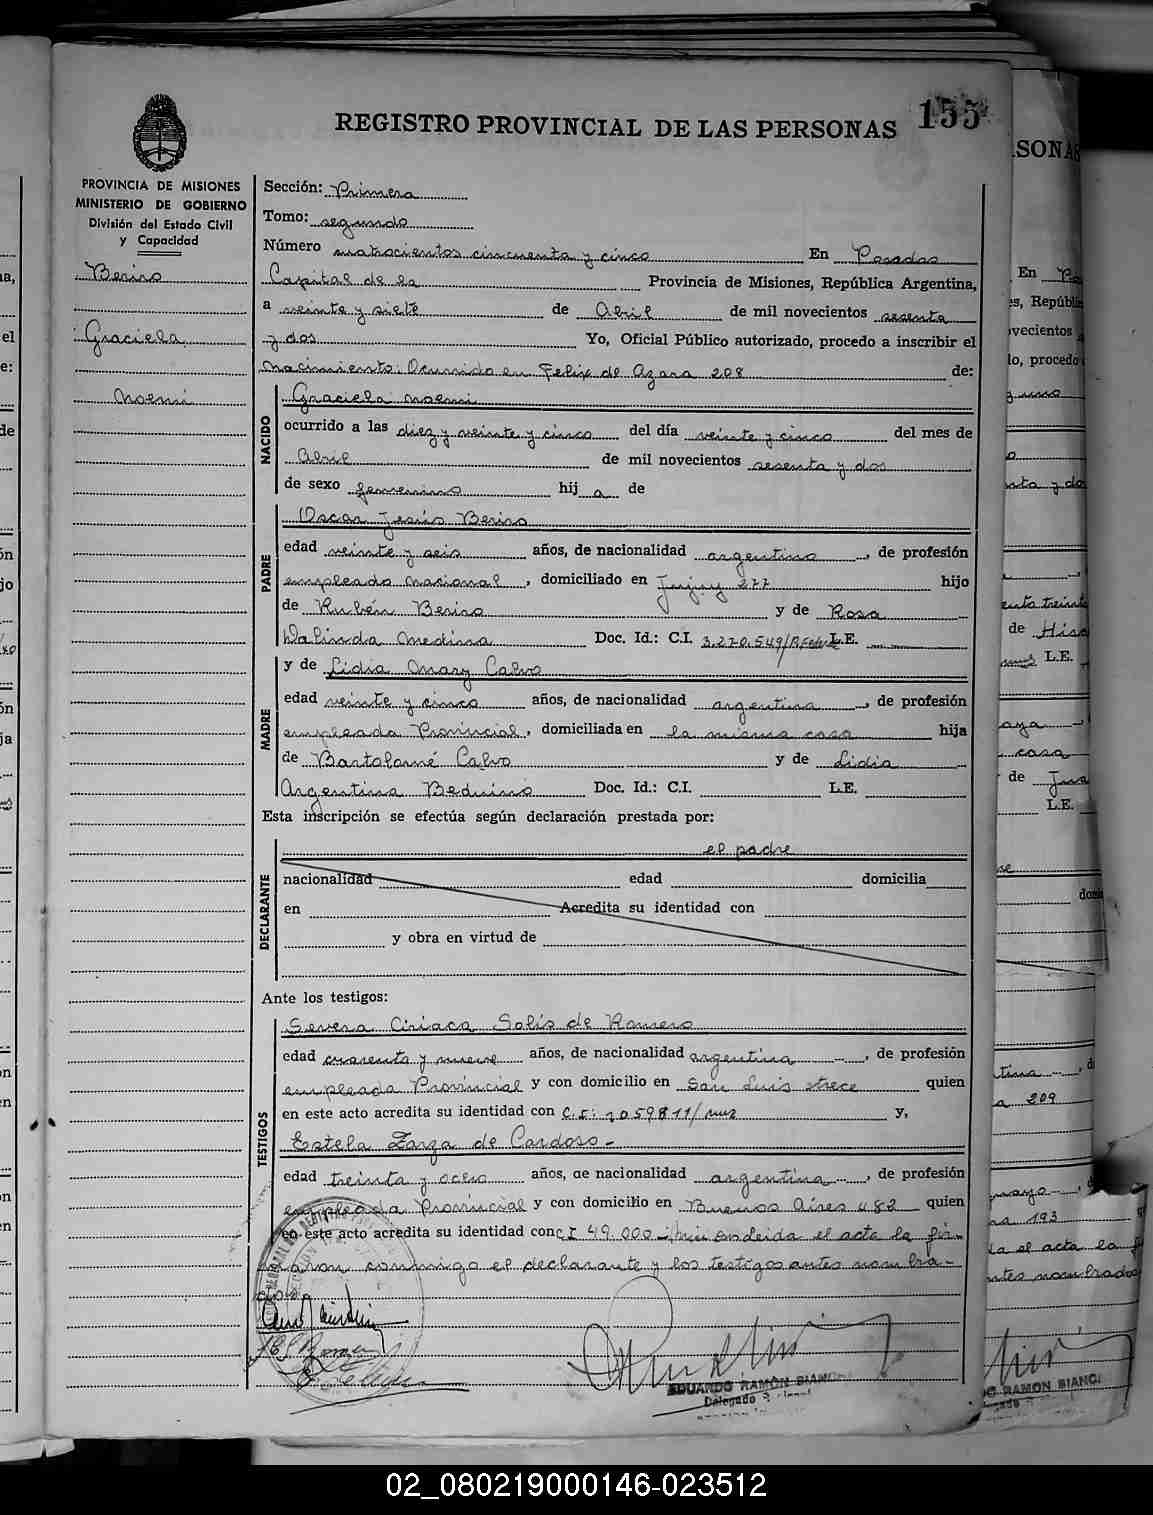 155
REGISTRO PROVINCIAL DE LAS PERSONAS
PROVINCIA DE MISIONES
MINISTERIO DE GOBIERNO
División del Estado Civil
y Capacidad
Graciela
Noemi
Sección: Primera
Tomo: segundo
Número cuatrocientos cincuenta y cinco En Posadas
Capital de la Provincia de Misiones, República Argentina,
a veinte y siete de Abril de mil novecientos sesenta
y dos Yo, Oficial Público autorizado, procedo a inscribir el
nacimiento: Ocurrido en Felix de Azara 208 de:
NACIDO
Graciela Noemi
ocurrido a las diez y veinte y cinco del día veinte y cinco del mes de
Abril de mil novecientos sesenta y dos
de sexo femenino hij a de
PADRE
Oscar Jesús
edad veinte y seis años, de nacionalidad argentino, de profesión
empleado nacional, domiciliado en Jujuy 277 hijo
de Rubén y de Rosa
Dalinda Medina Doc. Id.: C.I. 3.270.549 L.E.
MADRE
y de Lidia Mary Calvo
edad veinte y cinco años, de nacionalidad argentina, de profesión
empleada Provincial, domiciliada en la misma casa hija
de Bartolomé Calvo y de Lidia
Argentina Doc. Id.: C.I. L.E.
Esta inscripción se efectúa según declaración prestada por:
DECLARANTE
el padre
nacionalidad edad domicilia
en Acredita su identidad con
y obra en virtud de
Ante los testigos:
TESTIGOS
Severa Ciriaca Solís de Romero
edad cuarenta y nueve años, de nacionalidad argentina, de profesión
empleada Provincial y con domicilio en San Luis trece quien
en este acto acredita su identidad con C.I: y,
Estela Zarza de Cardoso-
edad treinta y ocho años, de nacionalidad argentina, de profesión
empleada Provincial y con domicilio en Buenos Aires 482 quien
en este acto acredita su identidad con C I 49.000 el acta la fir-
maron conmigo el declarante y los testigos antes nombra-
dos
EDUARDO RAMÓN BIANCHI
Delegado
02_080219000146-023512